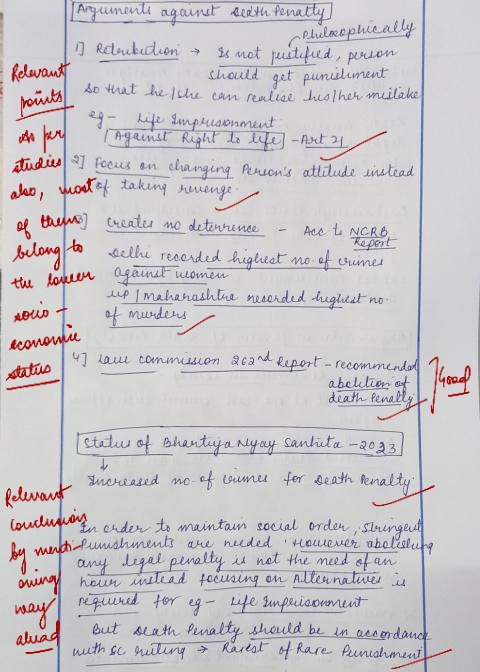 Arguments against Death Penalty
Philosophically
1] Retribution → Is not justified, person
should get punishment
So that he/she can realise his/her mistake
eg - Life Imprisonment
Against Right to life - Art 21
2] Focus on changing Person's attitude instead
of taking revenge.
3] Creates no deterrence - Acc to NCRB
Report
Delhi recorded highest no. of crimes
against women
UP/Maharashtra recorded highest no.
of murders
4] Law Commission 262nd Report - recommended
abolition of
death Penalty
Status of Bhartiya Nyay Sanhita - 2023
↓
Increased no. of crimes for Death Penalty.
In order to maintain social order, stringent
Punishments are needed. However abolishing
any legal penalty is not the need of an
hour instead focusing on Alternatives is
required for eg - Life Imprisonment
But Death Penalty should be in accordance
with SC ruling → Rarest of Rare Punishment
Relevant
points
As per
studies
also, most
of them
belong to
the lower
socio-
economic
status
Good
Relevant
Conclusion
by menti-
oning
way
ahead